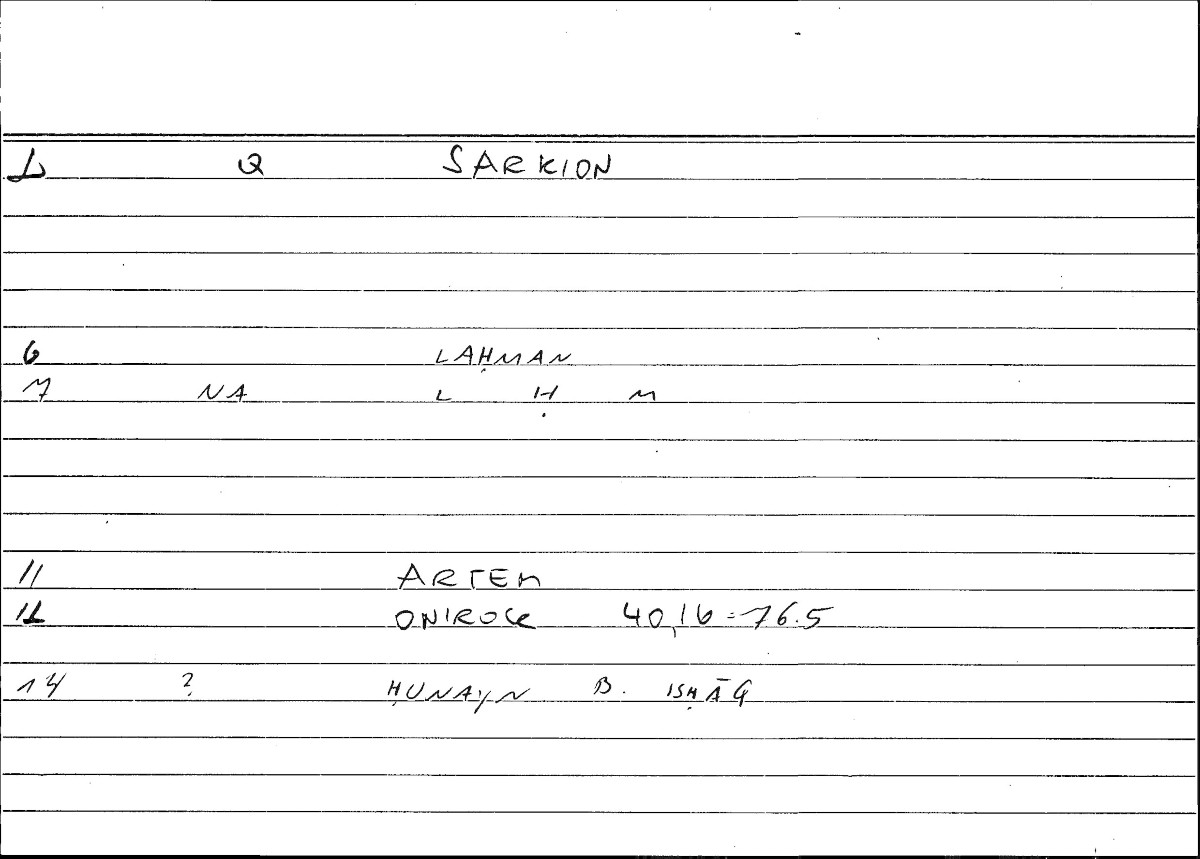 1 Q SARKION
6 LAḤMAN
7 NA L Ḥ M
11 ARTEM
12 ONIROCR 40,16=76.5
14 ? ḤUNAYN B. ISḤĀQ